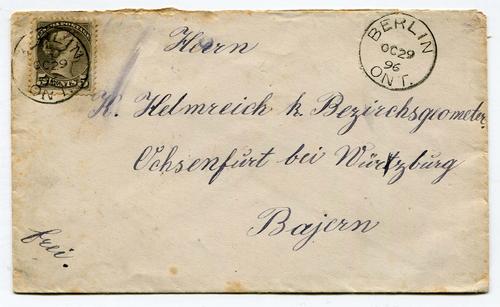 BERLIN
OC 29
96
ONT.
BERLIN
OC 29
ONT
5 CENTS 5
Herrn
K. Helmreich k. Bezirksgeometer.
Ochsenfurt bei Würtzburg
Bajern
frei.